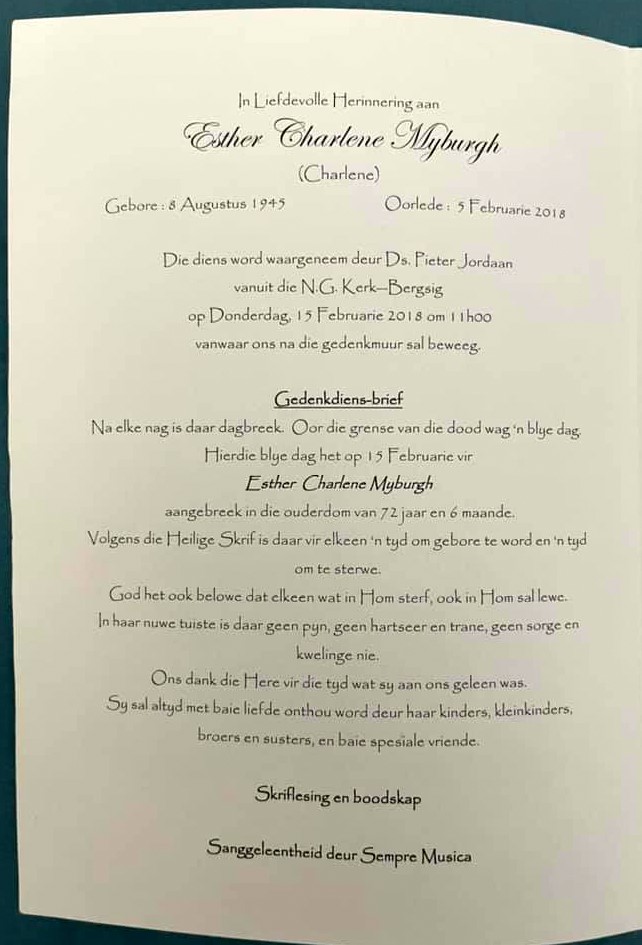 In Liefdevolle Herinnering aan
Esther Charlene Myburgh
(Charlene)
Gebore : 8 Augustus 1945 Oorlede : 5 Februarie 2018
Die diens word waargeneem deur Ds. Pieter Jordaan
vanuit die N.G. Kerk—Bergsig
op Donderdag, 15 Februarie 2018 om 11h00
vanwaar ons na die gedenkmuur sal beweeg.
Gedenkdiens-brief
Na elke nag is daar dagbreek. Oor die grense van die dood wag 'n blye dag.
Hierdie blye dag het op 15 Februarie vir
Esther Charlene Myburgh
aangebreek in die ouderdom van 72 jaar en 6 maande.
Volgens die Heilige Skrif is daar vir elkeen 'n tyd om gebore te word en 'n tyd
om te sterwe.
God het ook belowe dat elkeen wat in Hom sterf, ook in Hom sal lewe.
In haar nuwe tuiste is daar geen pyn, geen hartseer en trane, geen sorge en
kwelinge nie.
Ons dank die Here vir die tyd wat sy aan ons geleen was.
Sy sal altyd met baie liefde onthou word deur haar kinders, kleinkinders,
broers en susters, en baie spesiale vriende.
Skriflesing en boodskap
Sanggeleentheid deur Sempre Musica